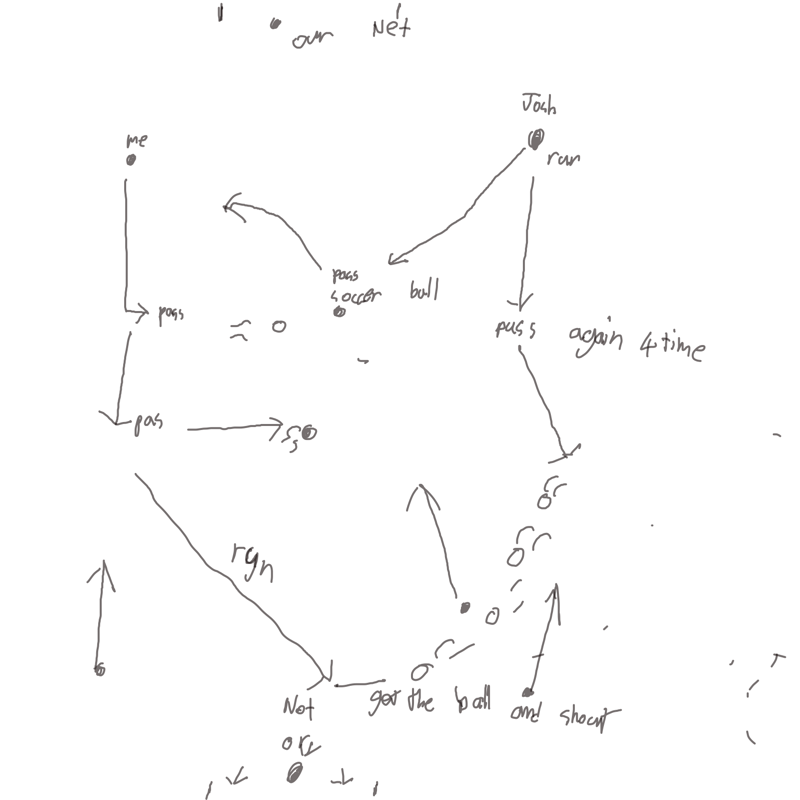 our Net
Josh
me
run
pass
soccer ball
pass
pass again 4 time
pas
run
Not
got the ball and shout